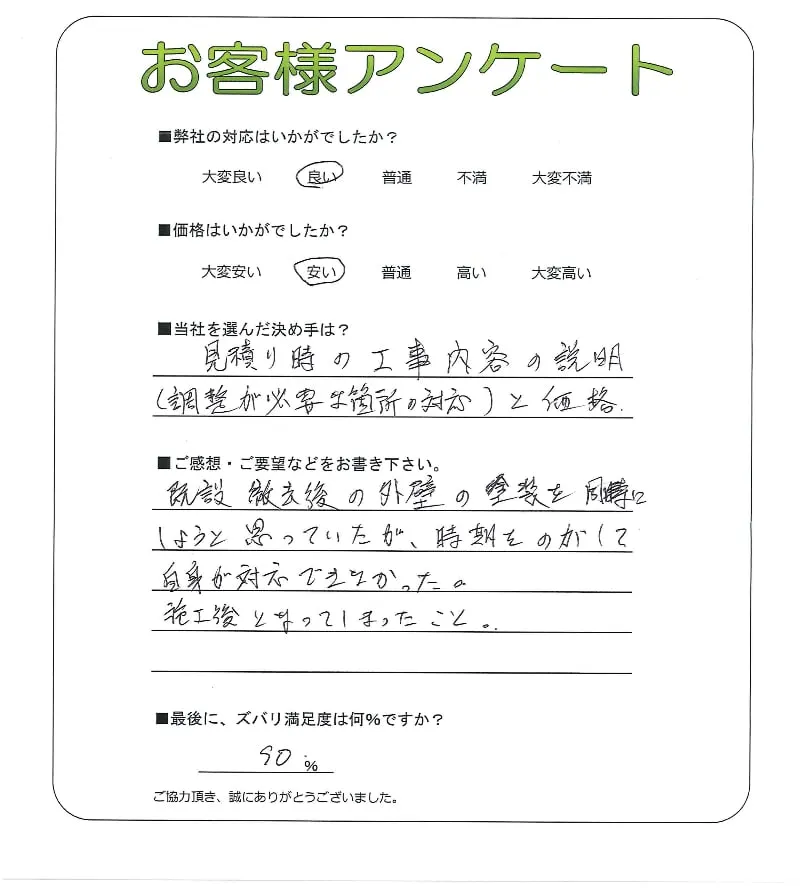 お客様アンケート
■弊社の対応はいかがでしたか？
大変良い 良い 普通 不満 大変不満
■価格はいかがでしたか？
大変安い 安い 普通 高い 大変高い
■当社を選んだ決め手は？
見積り時の工事内容の説明
(調整が必要な箇所の対応)と価格.
■ご感想・ご要望などをお書き下さい。
既設撤去後の外壁の塗装を同時に
しようと思っていたが、時期をのがして
自身が対応できなかった。
施工後となってしまったこと。
■最後に、ズバリ満足度は何%ですか？
90 %
ご協力頂き、誠にありがとうございました。